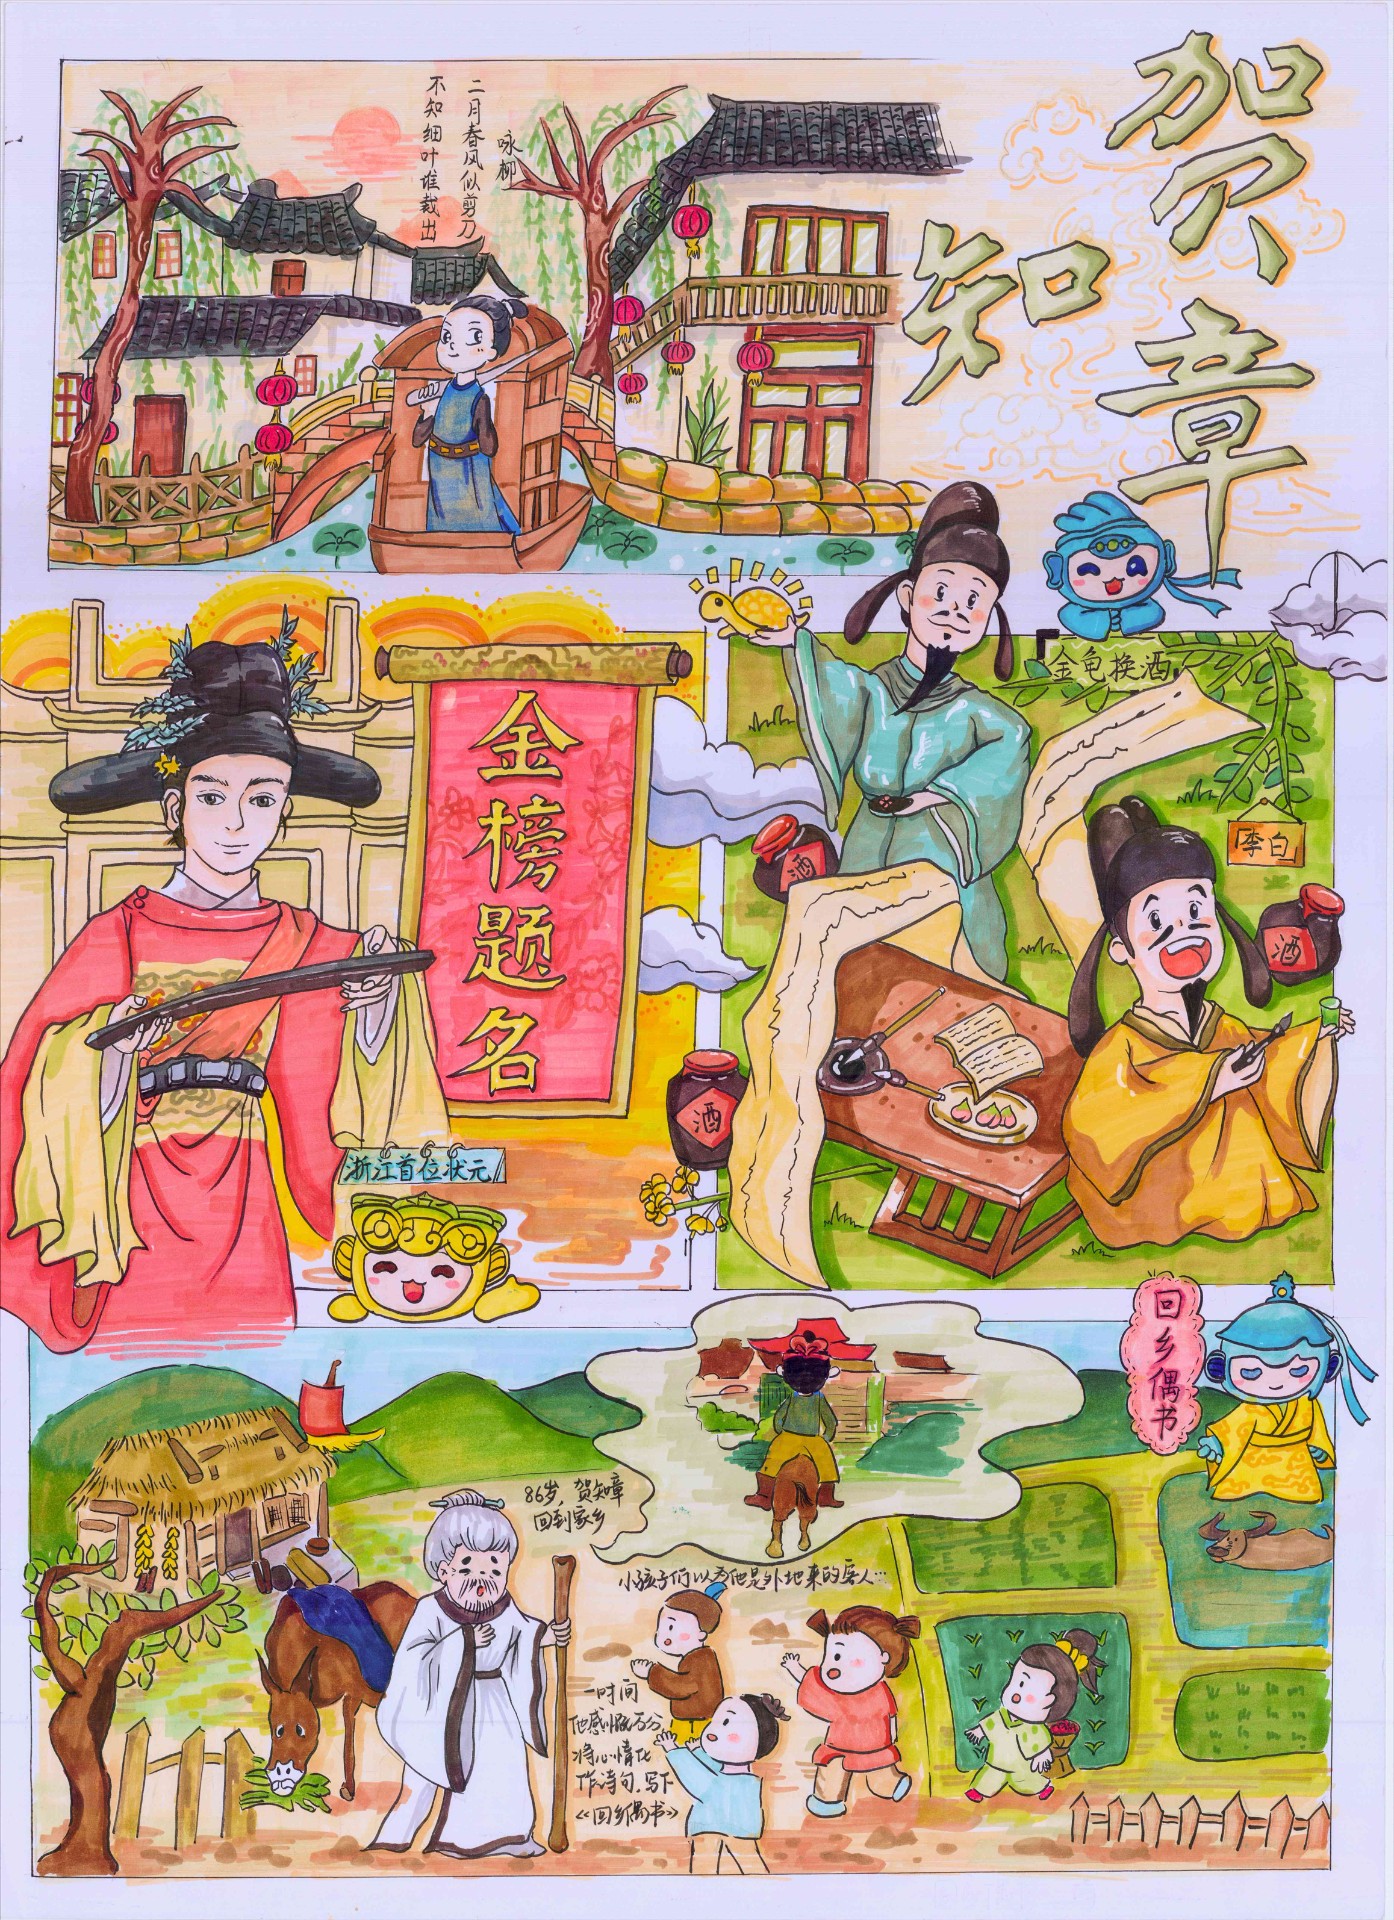 贺
知
章
咏柳
二月春风似剪刀
不知细叶谁裁出
金榜题名
浙江首位状元
金龟换酒
李白
酒
酒
酒
回乡偶书
86岁，贺知章
回到家乡
小孩子们以为他是外地来的客人…
一时间
他感慨万分
将心情化
作诗句，写下
《回乡偶书》